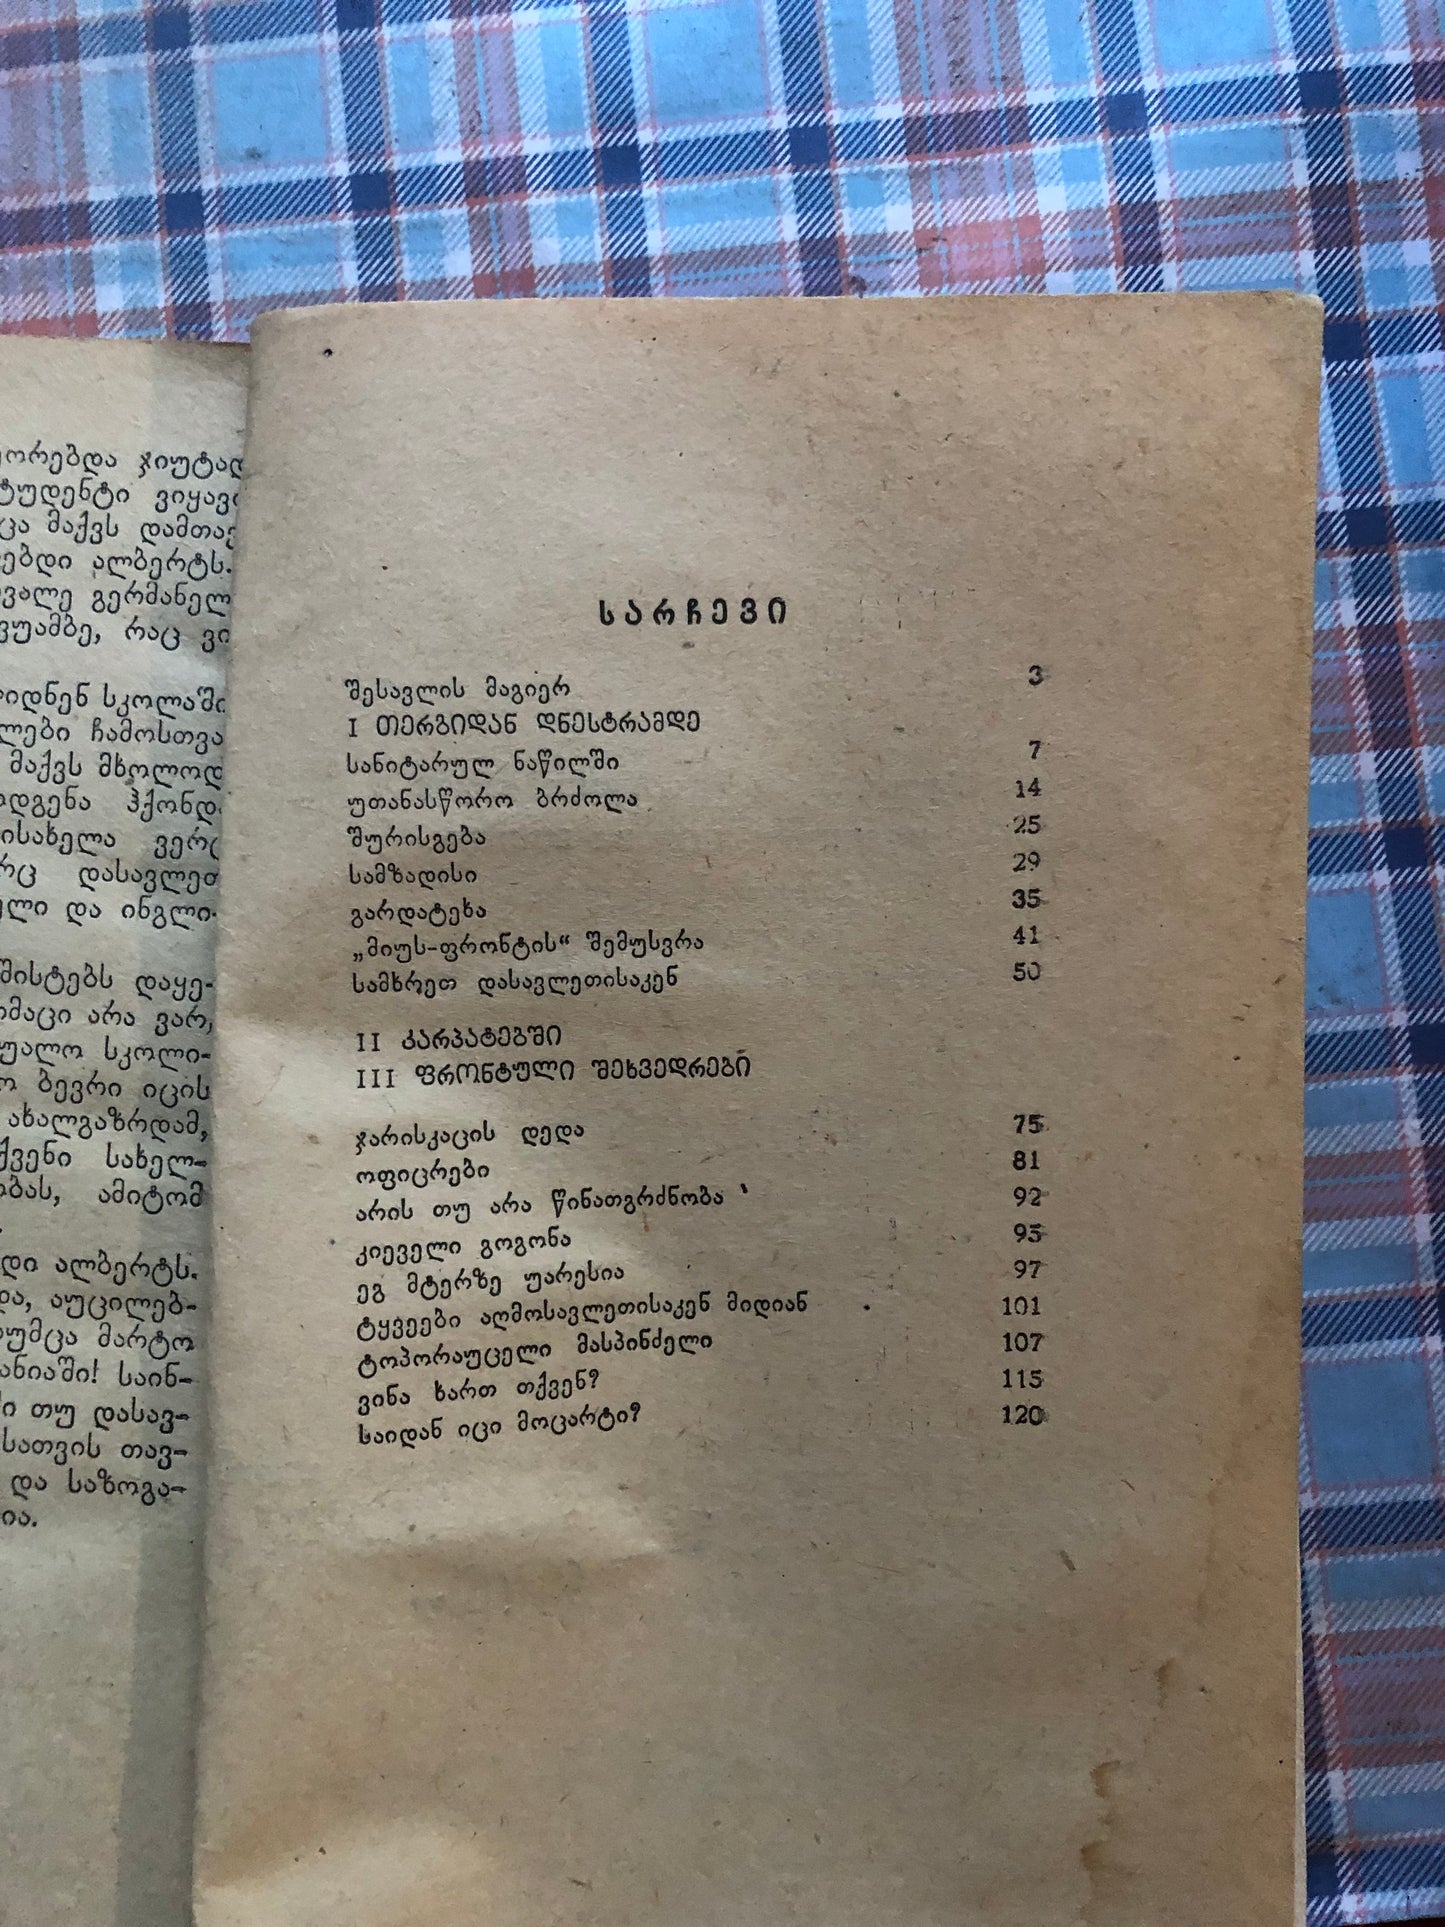 ჯიუტად
ვიყავი
მაქვს
ალბერტს.
გერმანელ
რაც ვი
სკოლაში
ჩამოსთვა
მაქვს მხოლოდ
ჰქონდა
ვერც
დასავლეთ
და ინგლი-
დაყე-
არა ვარ,
სკოლი-
ბევრი იცის
ახალგაზრდამ,
სახელ-
ამიტომ
ალბერტს.
აუცილებ-
მარტო
საინ-
თუ დასავ-
თავ-
და საზოგა-
სარჩევი
შესავლის მაგიერ 3
I თერგიდან დნესტრამდე
სანიტარულ ნაწილში 7
უთანასწორო ბრძოლა 14
შურისგება 25
სამზადისი 29
გარდატეხა 35
„მიუს-ფრონტის“ შემუსვრა 41
სამხრეთ დასავლეთისაკენ 50
II კარპატებში
III ფრონტული შეხვედრები
ჯარისკაცის დედა 75
ოფიცრები 81
არის თუ არა წინათგრძნობა 92
კიეველი გოგონა 95
ეგ მტერზე უარესია 97
ტყვეები აღმოსავლეთისაკენ მიდიან 101
ტოპორაუცელი მასპინძელი 107
ვინა ხართ თქვენ? 115
საიდან იცი მოცარტი? 120